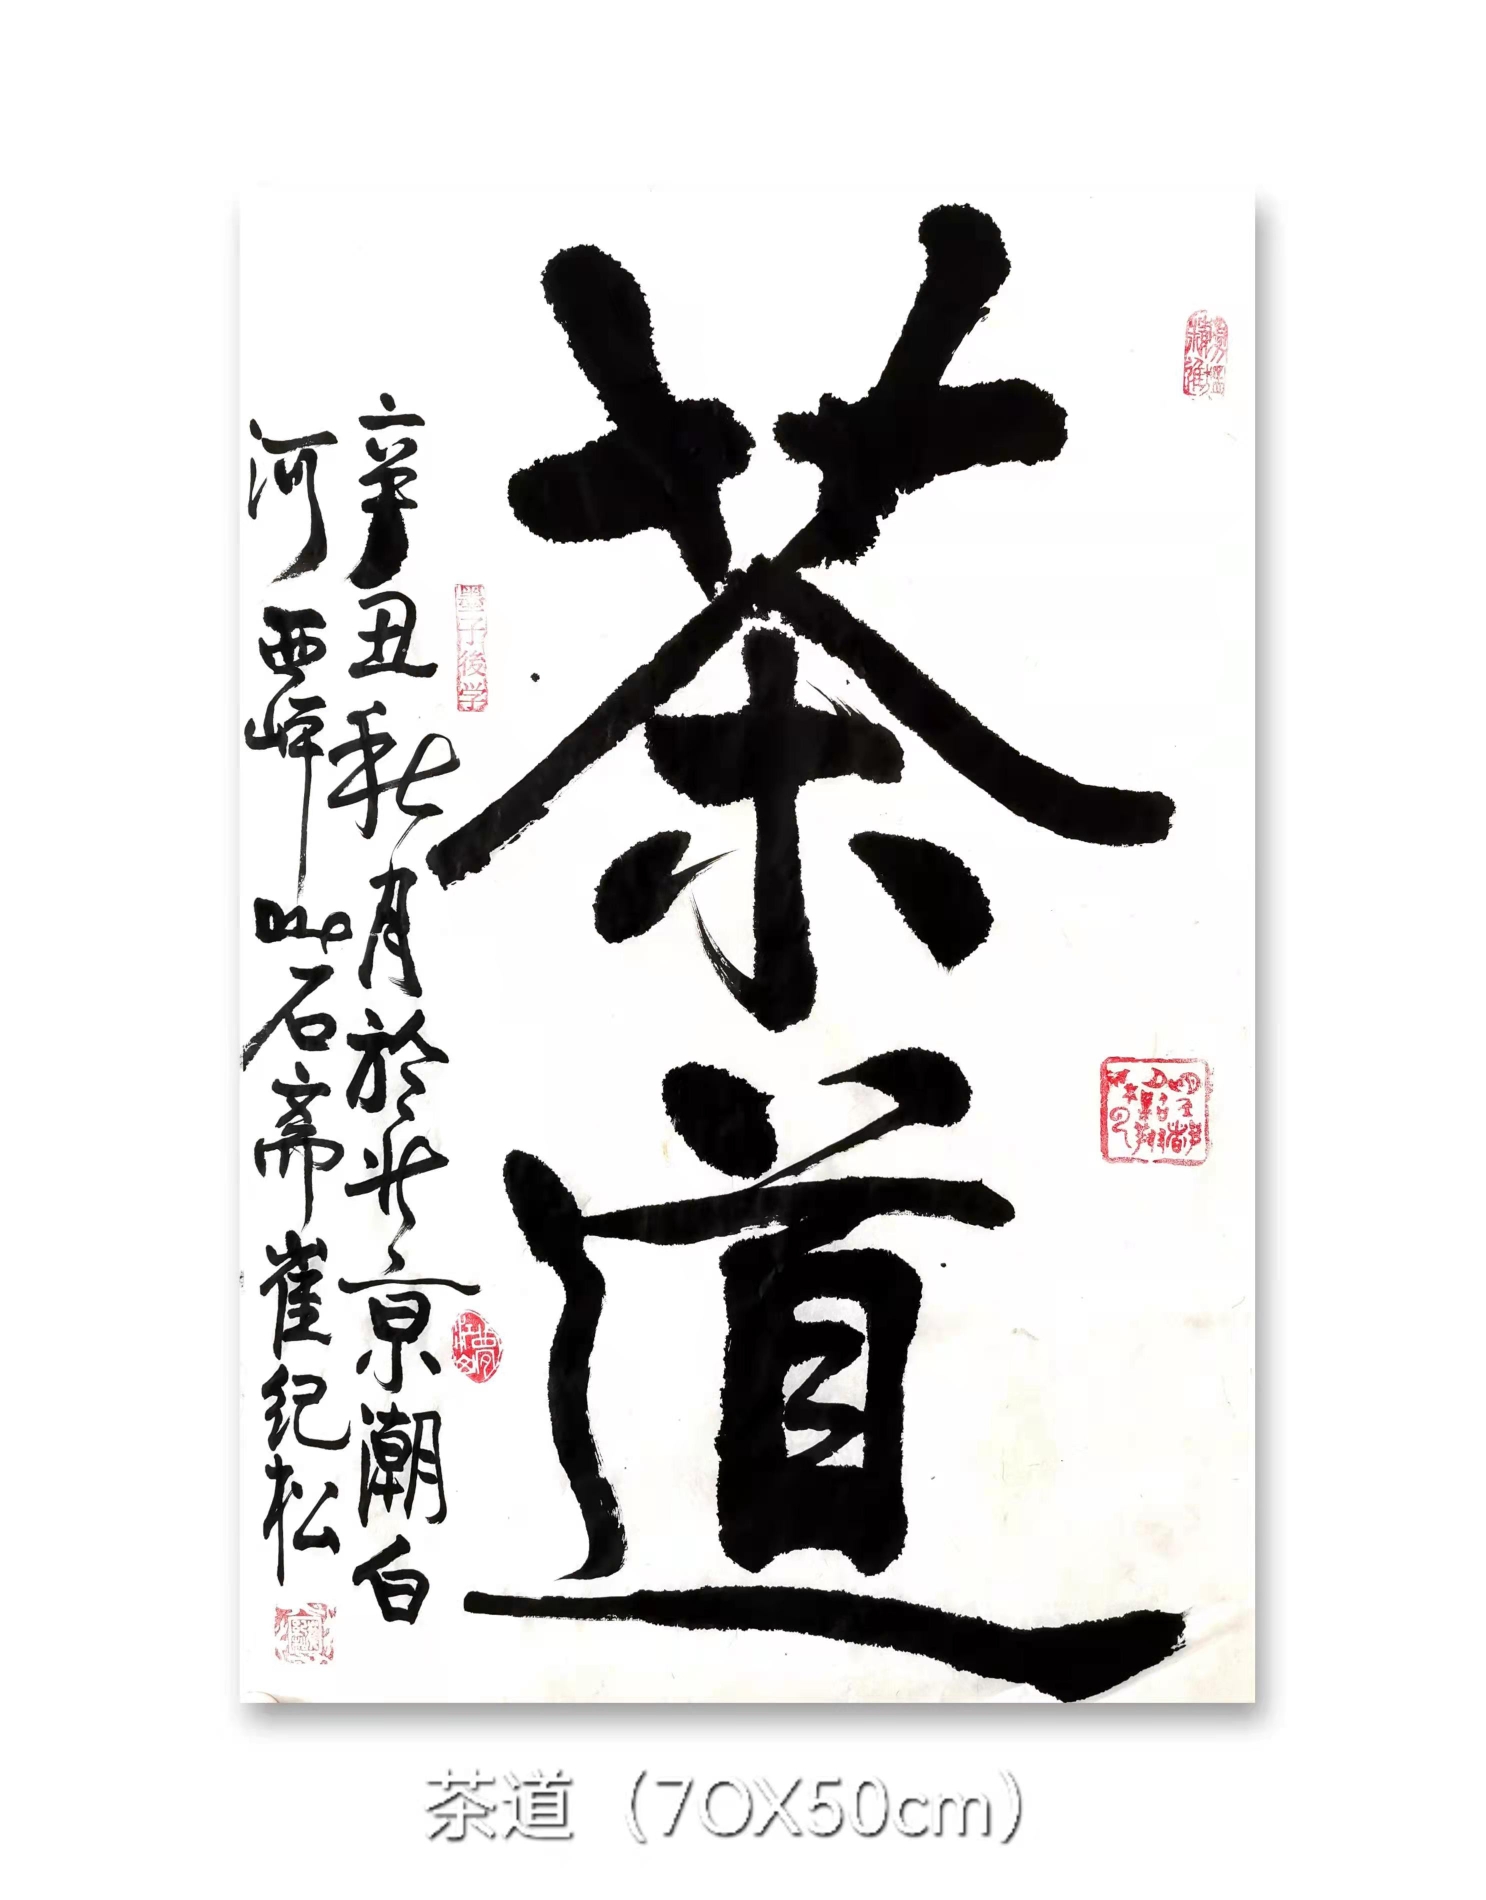 茶道
辛丑秋月於北京潮白
河西岸 石斋崔纪松
墨子後学
茶道（70X50cm）